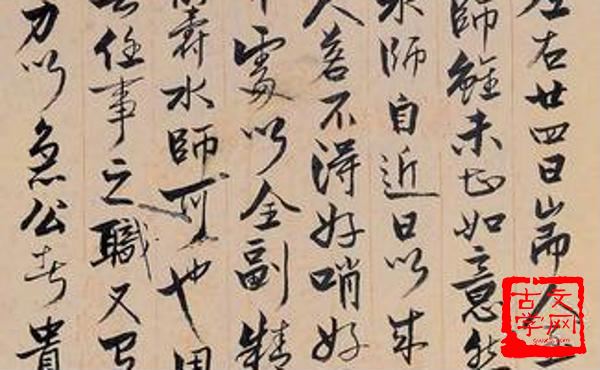 左右廿四日耑人至
師雖未如意然
水師自近日以來
人若不得好哨好
處以全副精
水師可也周
任事之職又
力以急公者貴
古文
学网